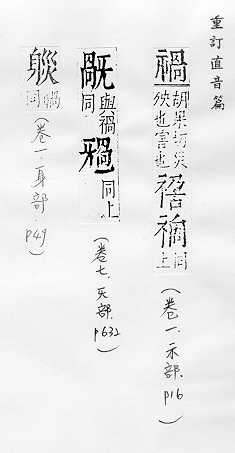 重訂直音篇
禍 胡果切災殃也害也 同上
(卷一.示部.p16)
與禍同 同上
(卷七.旡部.p632)
禍同
(卷一.身部.p49)